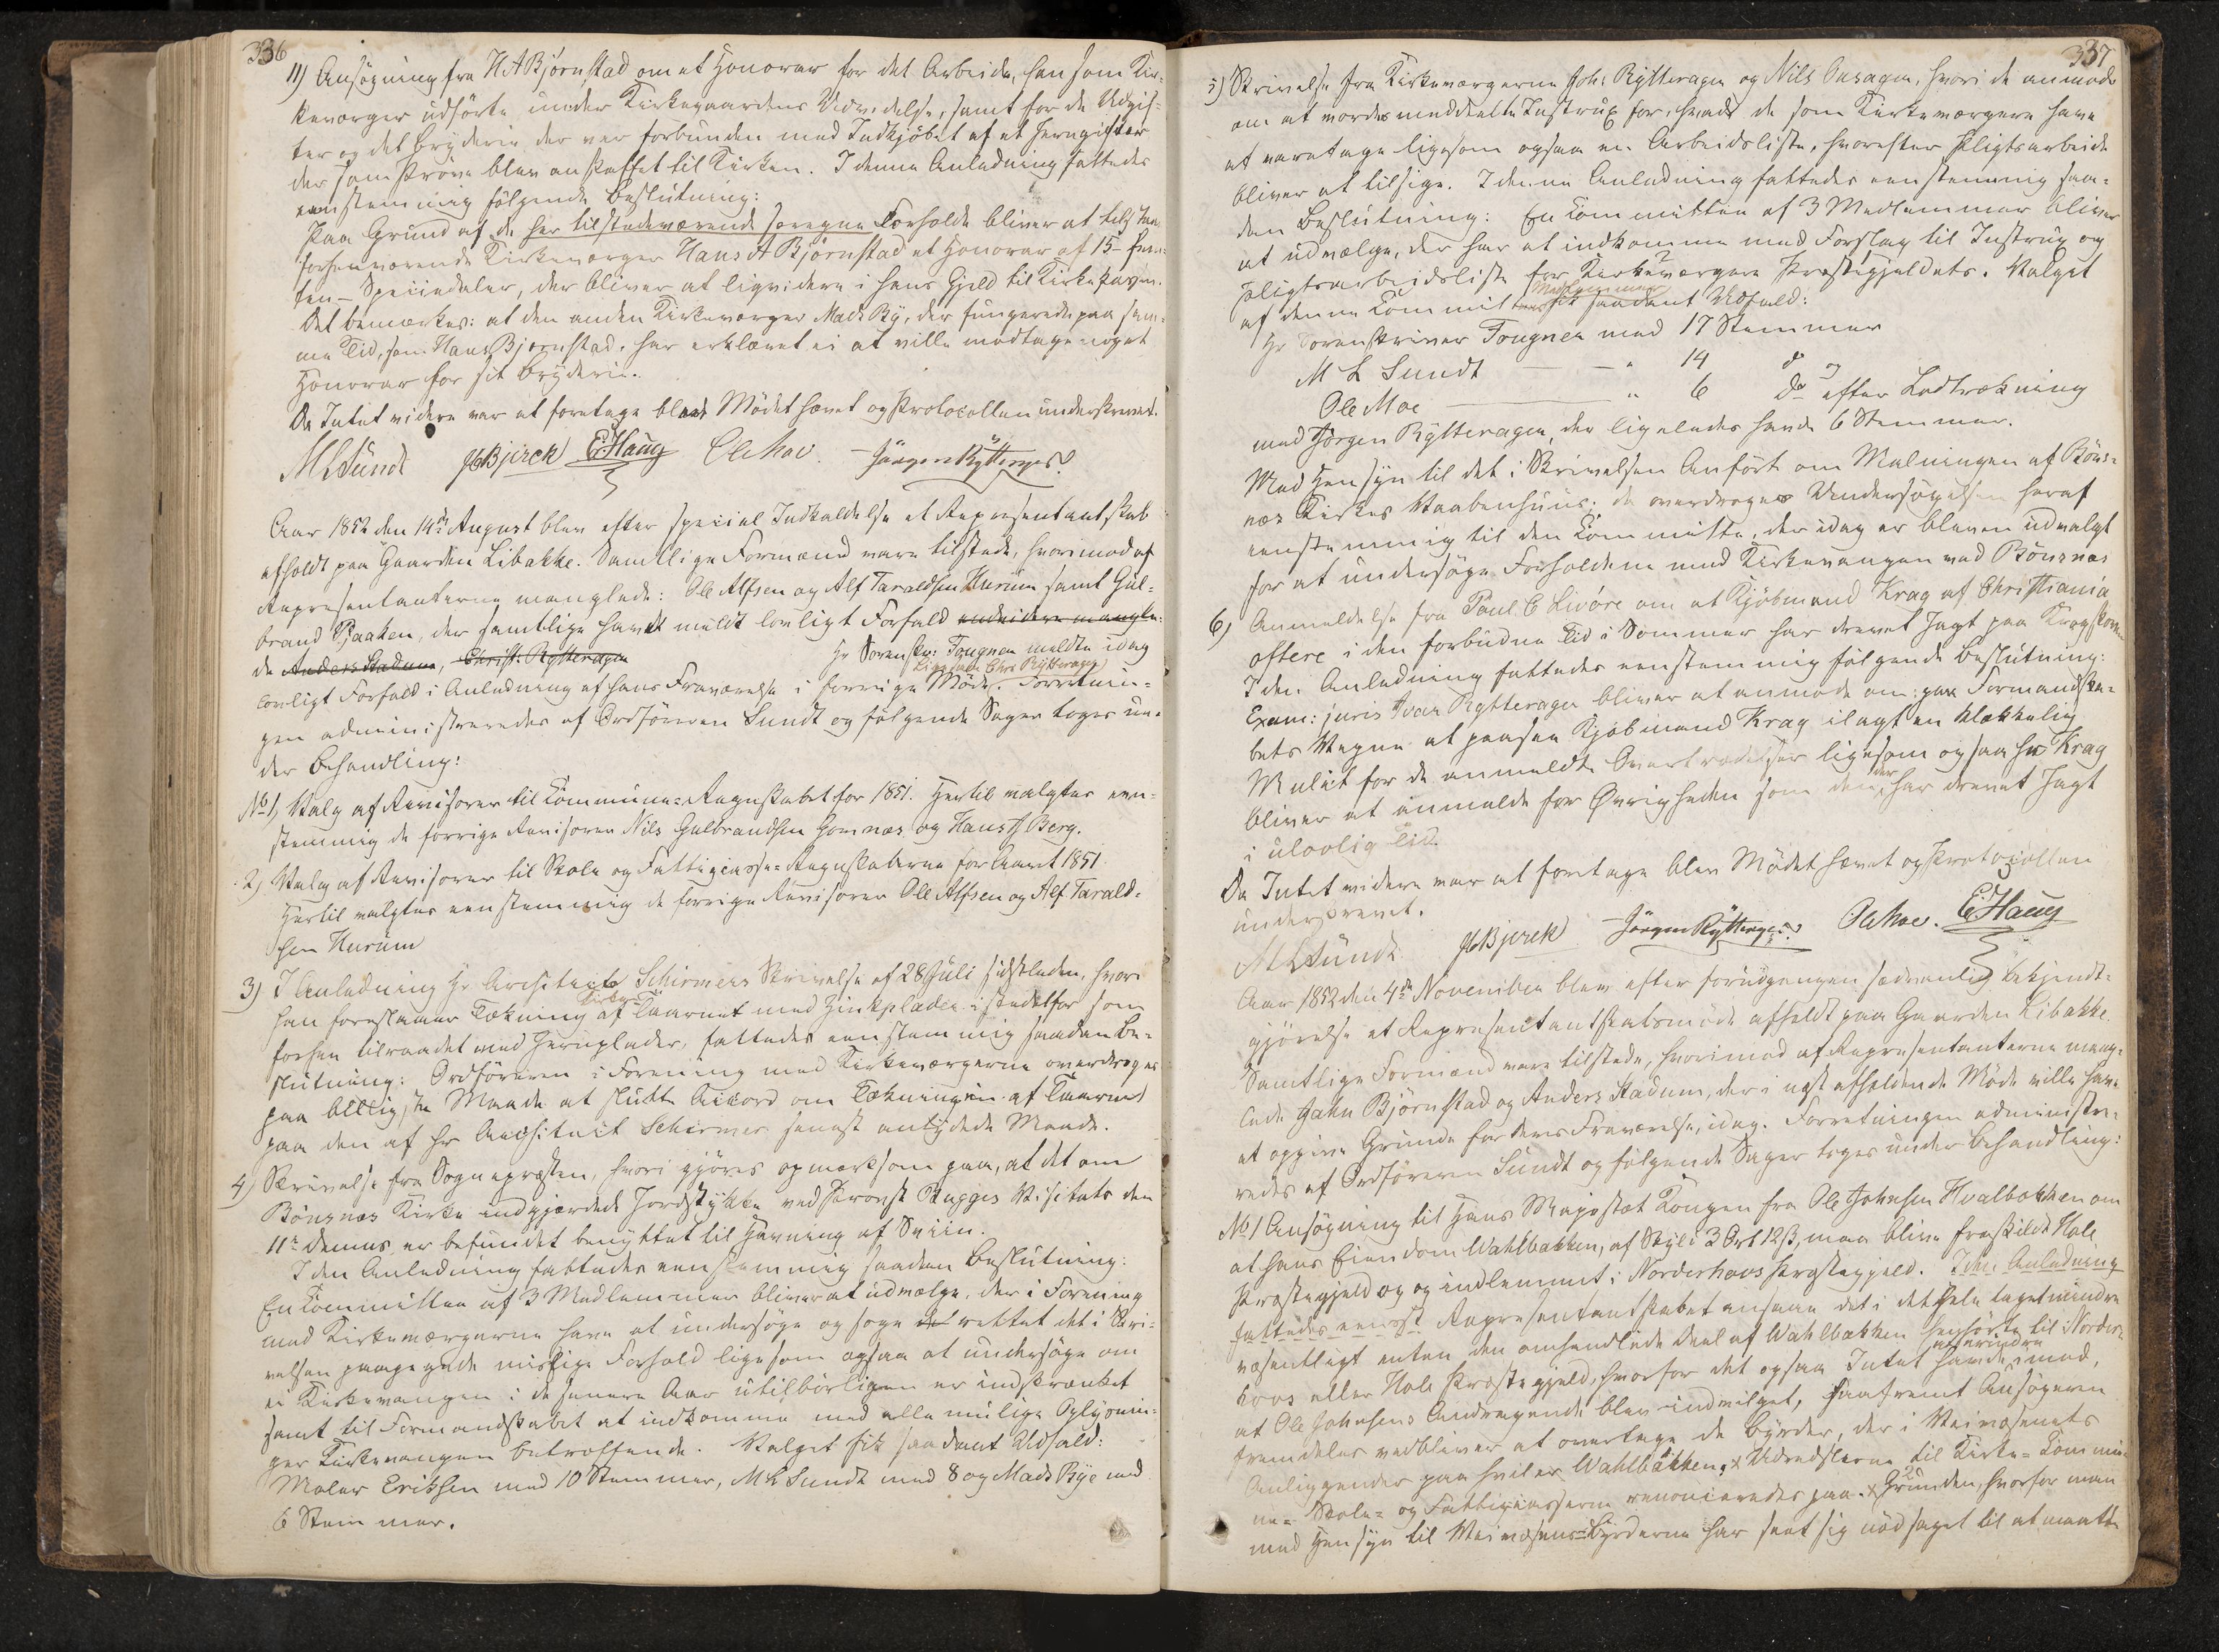 336
11) Ansögning fra H A Bjørnstad om et Honorar for det Arbeide, han som Kir-
keværger udførte under Kirkegaardens Udvidelse, samt for de Udgif-
ter og det Bryderie der var forbunden med Indkjöbet af et Jerngitter
der som Pröve blev anskaffet til Kirken. I denne Anledning fattedes
eenstemmig følgende Beslutning:
Paa Grund af de her tilstedeværende særegne Forholde bliver at tilstaae
forhenværende Kirkeværger Hans A Bjørnstad et Honorar af 15 – fem-
ten – Speciedaler, der bliver at liqvidere i hans Gjeld til Kirkekassen.
Det bemærkes: at den anden Kirkeværger Mads Bÿ, der fungerede paa sam-
me Tid, som Hans Bjørnstad, har erklæret ei at ville modtage noget
Honorar for sit Bryderie.
Da Intet videre var at foretage blev Mödet hævet og Protocollen underskrevet.
M L Sundt Bjerck E Haug Ole Moe. Jörgen Rytterager
Aar 1852 den 14de August blev efter speciel Indkaldelse et Representantskab
afholdt paa Gaarden Libakke. Samtlige Formænd vare tilstede, hvorimod af
Representanterne manglede: Ole Alfsen og Alf Taraldsen Hurum samt Gul-
brand Paaken, der samtlige havde meldt lovligt Forfald endvidere mangle-
de Anders Stadum, Christ: Rytteragen Hr Sorenskr: Fougner meldte idag
Ligesaa Chr Rytteragen
lovligt Forfald i Anledning af hans Fraværelse i forrige Möde. Forretnin-
gen administreredes af Ordföreren Sundt og følgende Sager toges un-
der Behandling:
No 1, Valg af Revisorer til Commune-Regnskabet for 1851. Hertil valgtes een-
stemmig de forrige Revisorer Nils Gulbrandsen Gomnæs og Hans J Berg.
2) Valg af Revisorer til Skole og Fattigcasse-Regnskaberne for Aaret 1851.
Hertil valgtes eenstemmig de forrige Revisorer Ole Alfsen og Alf Tarald-
sen Hurum
3) I Anledning Hr Architect Schirmers Skrivelse af 28 Juli sidstleden, hvori
Kirke
han foreslaaer Tækning af Taarnet med Zinkplader istedetfor som
forhen tilraadet med Jernplader, fattedes eenstemmig saadan Be-
slutning: Ordföreren i Forening med Kirkeværgerne overdroges
paa billigste Maade at slutte Accord om Tækningen af Taarnet
paa den af Hr Architect Schirmer senest antydede Maade.
4) Skrivelse fra Sognepræsten, hvori gjøres opmærksom paa, at det om
Bönsnæs Kirke indgjærdede Jordstykke ved Provst Bugges Visitats den
11te dennes, er befundet benyttet til Havning af Sviin.
I den Anledning fattedes eenstemmig saadan Beslutning:
En Committee af 3 Medlemmer bliver at udvælge, der i Forening
med Kirkeværgerne have at undersöge og søge det rettet det i Skri-
velsen paapegede mislige Forhold ligesom ogsaa at undersöge om
ei Kirkevangen i de senere Aar utilbörligen er indskrænket
samt til Formandskabet at indkomme med alle mulige Oplysnin-
ger Kirkevangen betræffende. Valget fik saadant Udfald:
Maler Eriksen med 10 Stemmer, M L Sundt med 8 og Mads Bye med
6 Stemmer.
337
5) Skrivelse fra Kirkeværgerne Joh: Rytteragen og Nils Onsagen, hvori de anmode
om at vorde meddeelt Instrux for, hvad de som Kirkeværgere have
at varetage ligesom ogsaa en Arbeidsliste, hvorefter Pligtsarbeide
bliver at tilsige. I denne Anledning fattedes eenstemmig saa-
dan Beslutning: En Committee af 3 Medlemmer bliver
at udvælge, der har at indkomme med Forslag til Instrux og
Pligtsarbeidsliste for Kirkeværgere Præstegjeldets. Valget
Medlemmer
af denne Committees fik saadant Udfald:
Hr Sorenskriver Fougner med 17 Stemmer
M L Sundt — — " 14 do og
Ole Moe — " 6 do efter Lodtrækning
med Jörgen Rytteragen, der ligeledes havde 6 Stemmer.
Med Hensyn til det i Skrivelsen Anførte om Malningen af Böns-
næs Kirkes Vaabenhuus, da overdroges Undersögelsen heraf
eenstemmig til den Committee, der idag er bleven udvalgt
for at undersöge Forholdene med Kirkevangen ved Bönsnæs
6) Anmeldelse fra Paul C Livöre om at Kjöbmand Krag af Christiania
oftere i den forbudne Tid i Sommer har drevet Jagt paa Krogskoven
I den Anledning fattedes eenstemmig følgende Beslutning:
Exam: juris Ivar Rytterager bliver at anmode om: paa Formandska-
bets Vegne at paasee Kjøbmand Krag ilagt en klækkelig
Mulct for de anmeldte Overtrædelser ligesom ogsaa Hr Krag
bliver at anmelde for Øvrigheden som den, der har drevet Jagt
i ulovlig Tid.
Da Intet videre var at foretage blev Mödet hævet og Protocollen
underskrevet.
M L Sundt Bjerck Jörgen Rytterager Ole Moe. E Haug
Aar 1852 den 4de November blev efter forudgangen sædvanlig Bekjendt-
gjörelse et Representantskabsmöde afholdt paa Gaarden Libakke.
Samtlige Formænd vare tilstede, hvorimod af Representanterne mang-
lede Jahn Bjørnstad og Anders Stadum, der i næst afholdende Möde ville have
at opgive Grunde for deres Fraværelse, idag. Forretningen administre-
redes af Ordföreren Sundt og følgende Sager toges under Behandling:
No 1 Ansögning til Hans Majestæt Kongen fra Ole Johnsen Hvalbakken om
at hans Eiendom Wahlbakken, af Skyld 3 Ort 12 ß, maa blive fraskildt Hole
Præstegjeld og og indlemmet i Norderhovs Præstegjeld. I den Anledning
fattedes eenst Representantskabet ansaae det i det hele taget mindre
væsentligt enten den omhandlede Deel af Wahlbakken henhörte til Norder-
hovs eller Hole Præstegjeld, hvorfor det ogsaa Intet havde at erindre imod,
at Ole Johnsens Andragende blev indvilget, saafremt Ansögeren
fremdeles vedbliver at overtage de Byrder, der i Veivæsenets
Anliggender paa hviler Wahlbakken, x Udredslerne til Kirke- Commu-
ne- Skole- og Fattigcasserne renonceredes paa. x Grunden, hvorfor man
med Hensyn til Veivæsens-Byrderne har seet sig nödsaget til at maatte